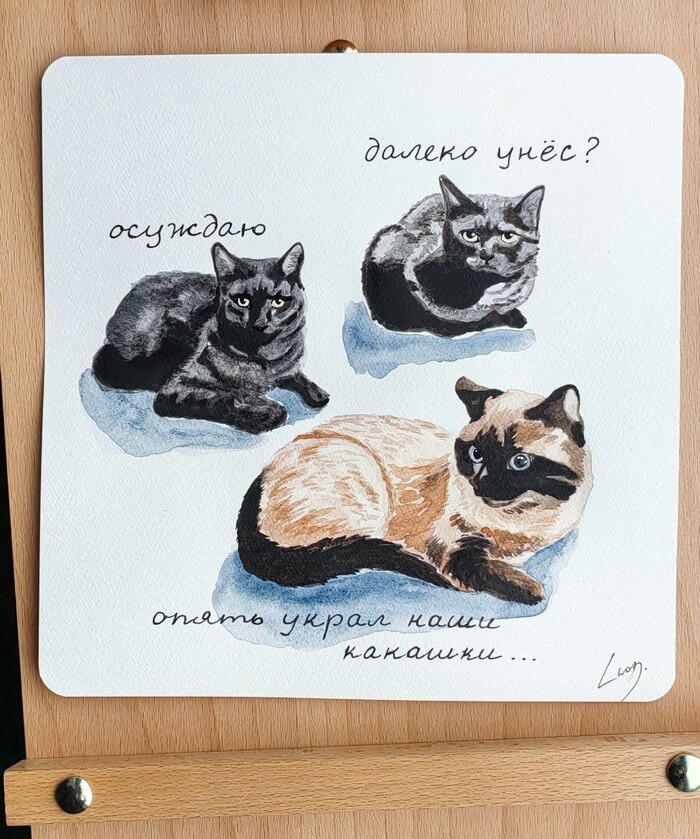 далеко унёс?
осуждаю
опять украл наши
какашки...